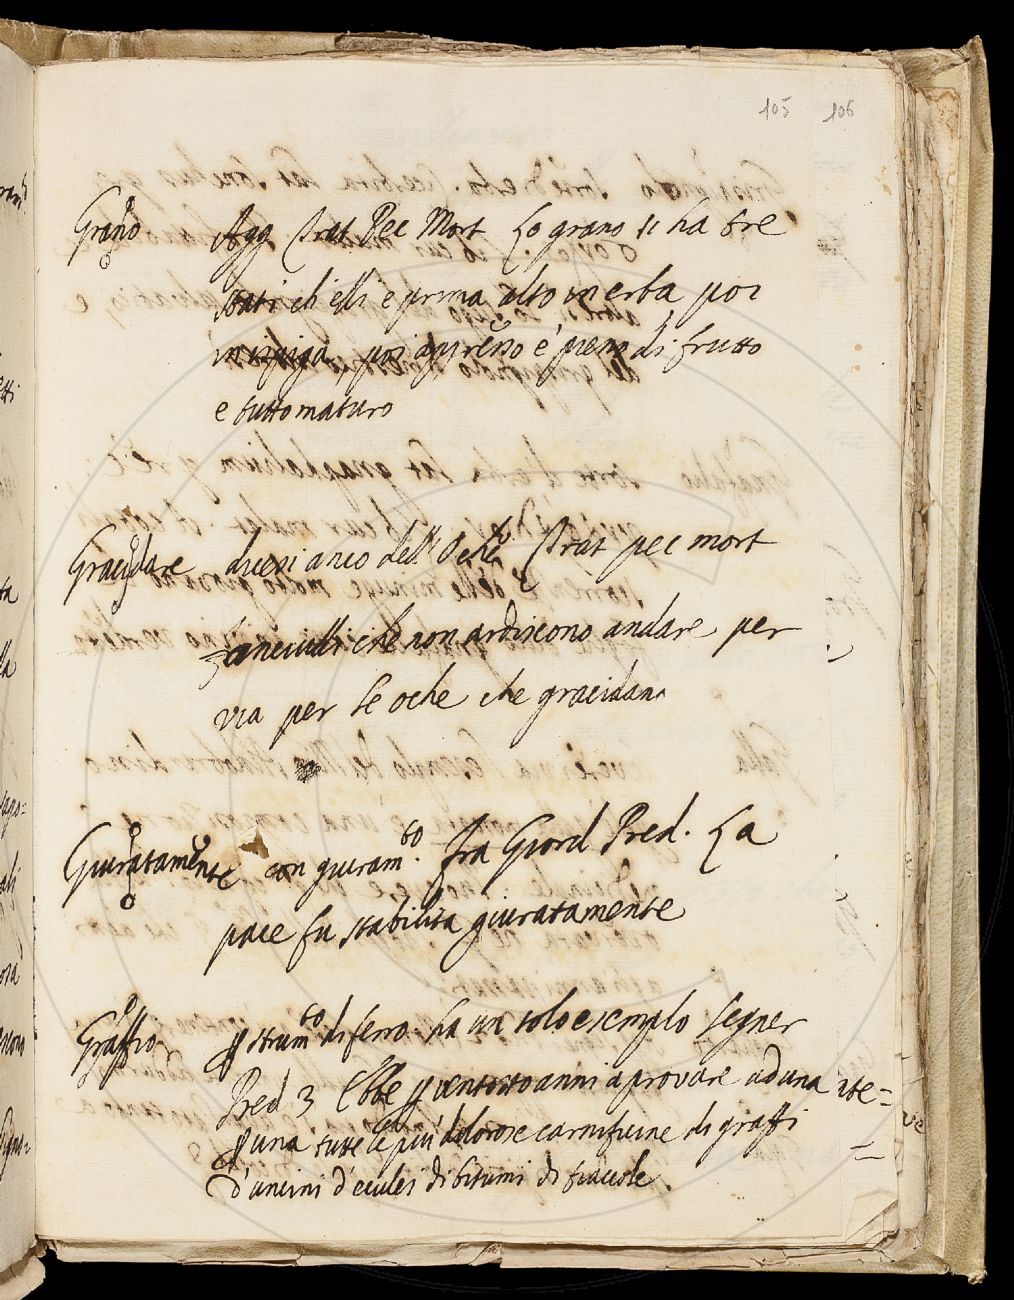 105 106
Grano Agg Trat Pec Mort Lo grano si ha tre
stati ch elli e prima alto in erba poi
in ispiga, poi appresso è pieno di frutto
e tutto maturo
Gracidare dicesi anco dell' Oche Trat pec mort
fanciulli che non ardiscono andare per
via per le oche che gracidano
Giuratamente con giuram.to Fra Giord Pred. La
pace fu stabilita giuratamente
Graffio strum.to di ferro. ha un solo esemplo Segner
Pred 3 Ebbe ventotto anni a provare ad una
una tutte le più dolorose carnificine di graffi
d'uncini d'eculei di bitumi di fiaccole.